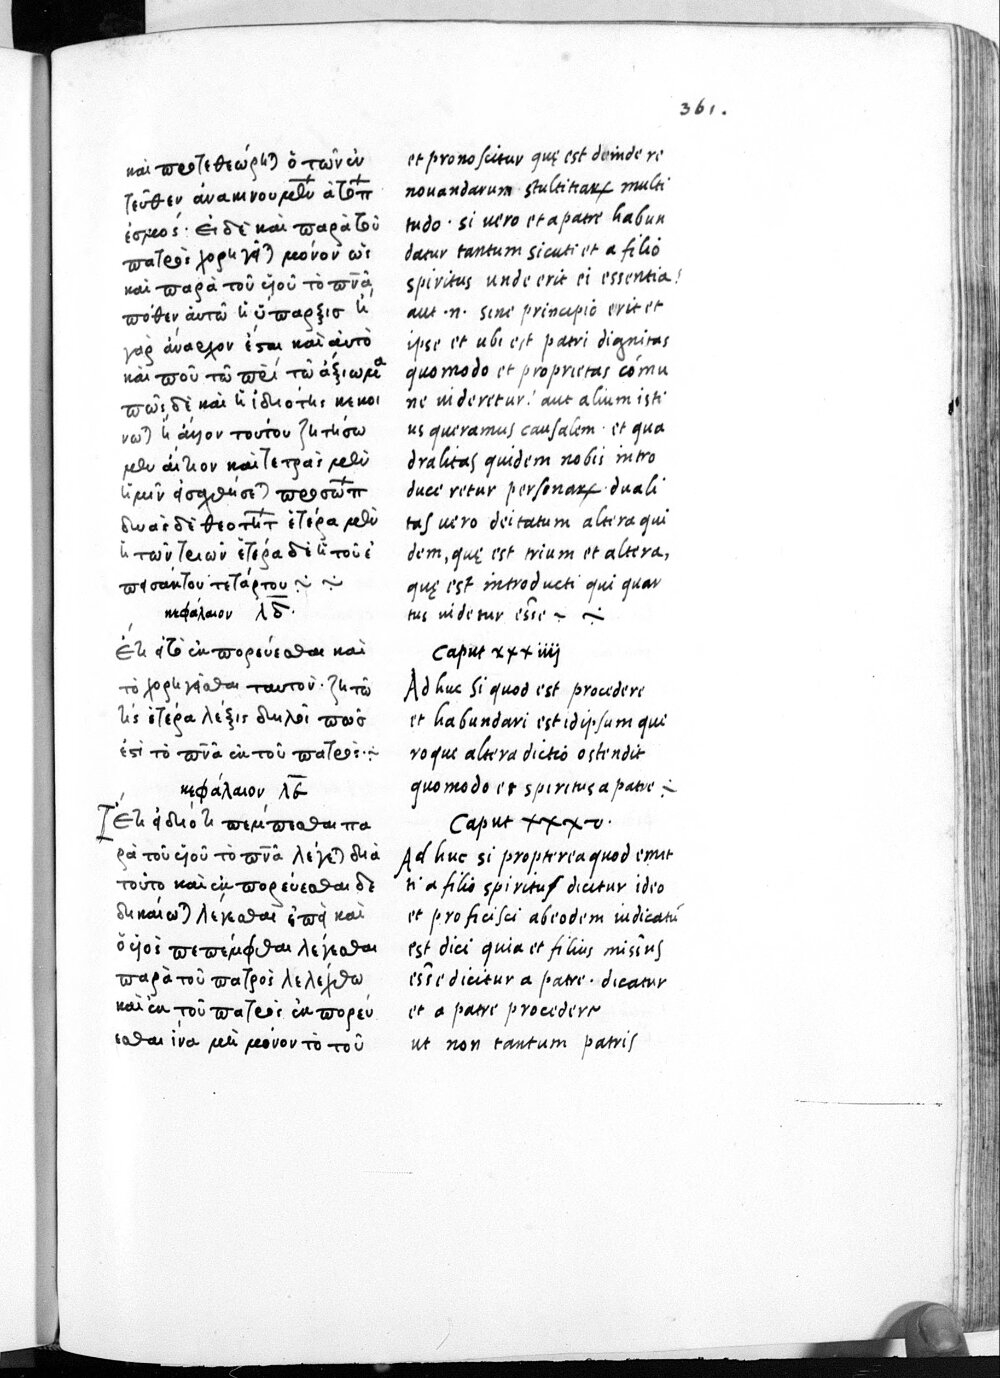 361.
καὶ προτεθεώρηται ὁ τῶν ἐν
τεῦθεν ἀνακινουμένων ἀτόπων
ἑσμός· εἰ δὲ καὶ παρὰ τοῦ
πατρὸς χορηγεῖται μόνον ὡς
καὶ παρὰ τοῦ υἱοῦ τὸ πνᾶ
πόθεν αὐτῶ ἡ ὕπαρξις ἢ
γὰρ ἄναρχον ἔσται καὶ αὐτὸ
καὶ ποῦ τῶ πρὶ τῶ ἀξίωμα
πῶς δὲ καὶ ἡ ἰδιότης κεκοι
νωται ἢ ἄλλον τούτου ζητήσω
μεν αἴτιον καὶ τετρὰς μὲν
ἡμῖν εἰσαχθήσεται προσώπων
δυὰς δὲ θεοτήτων ἑτέρα μὲν
ἡ τῶν τριῶν ἑτέρα δὲ ἡ τοῦ ἐ
πεισάκτου τετάρτου ⁓ ⁓
κεφάλαιον λδ·
Ἔτι εἰ τὸ ἐκπορεύεσθαι καὶ
τὸ χορηγεῖσθαι ταυτὸν· ζητῶ
τίς ἑτέρα λέξις δηλοῖ πῶς
ἐστὶ τὸ πνᾶ ἐκ τοῦ πατρὸς·⁓
κεφάλαιον λε
Ἔτι εἰ διότι πέμπεσθαι πα
ρὰ τοῦ υἱοῦ τὸ πνᾶ λέγεται διὰ
τοῦτο καὶ ἐκπορεύεσθαι δε
δικαίωται λέγεσθαι ἐπεὶ καὶ
ὁ υἱὸς πεπέμφθαι λέγεσθαι
παρὰ τοῦ πατρὸς λελέχθω
καὶ ἐκ τοῦ πατρὸς ἐκπορεύ
εσθαι ἵνα μὴ μόνον τὸ τοῦ
et pronoscitur quę est deinde re
nouandarum stultitiarum multi
tudo · si uero et a patre habun
datur tantum sicuti et a filio
spiritus unde erit ei essentia?
aut ·n· sine principio erit et
ipse et ubi est patri dignitas
quomodo et proprietas cōmu
ne uideretur? aut alium isti
us queramus causalem · et qua
dralitas quidem nobis intro
duceretur personarum · duali
tas uero deitatum altera qui
dem, quę est trium et altera,
quę est introducti qui quar
tus uidetur esse ⁓ ⁓
Caput xxxiiij
Ad huc si quod est procedere
et habundari est idipsum que
ro que altera dictio ostendit
quomodo est spiritus a patre ⁓
Caput xxxv·
Ad huc si propterea quod emit
ti a filio spiritus dicitur ideo
et proficisci ab eodem iudicatū
est dici quia et filius missus
esse dicitur a patre · dicatur
et a patre procedere
ut non tantum patris